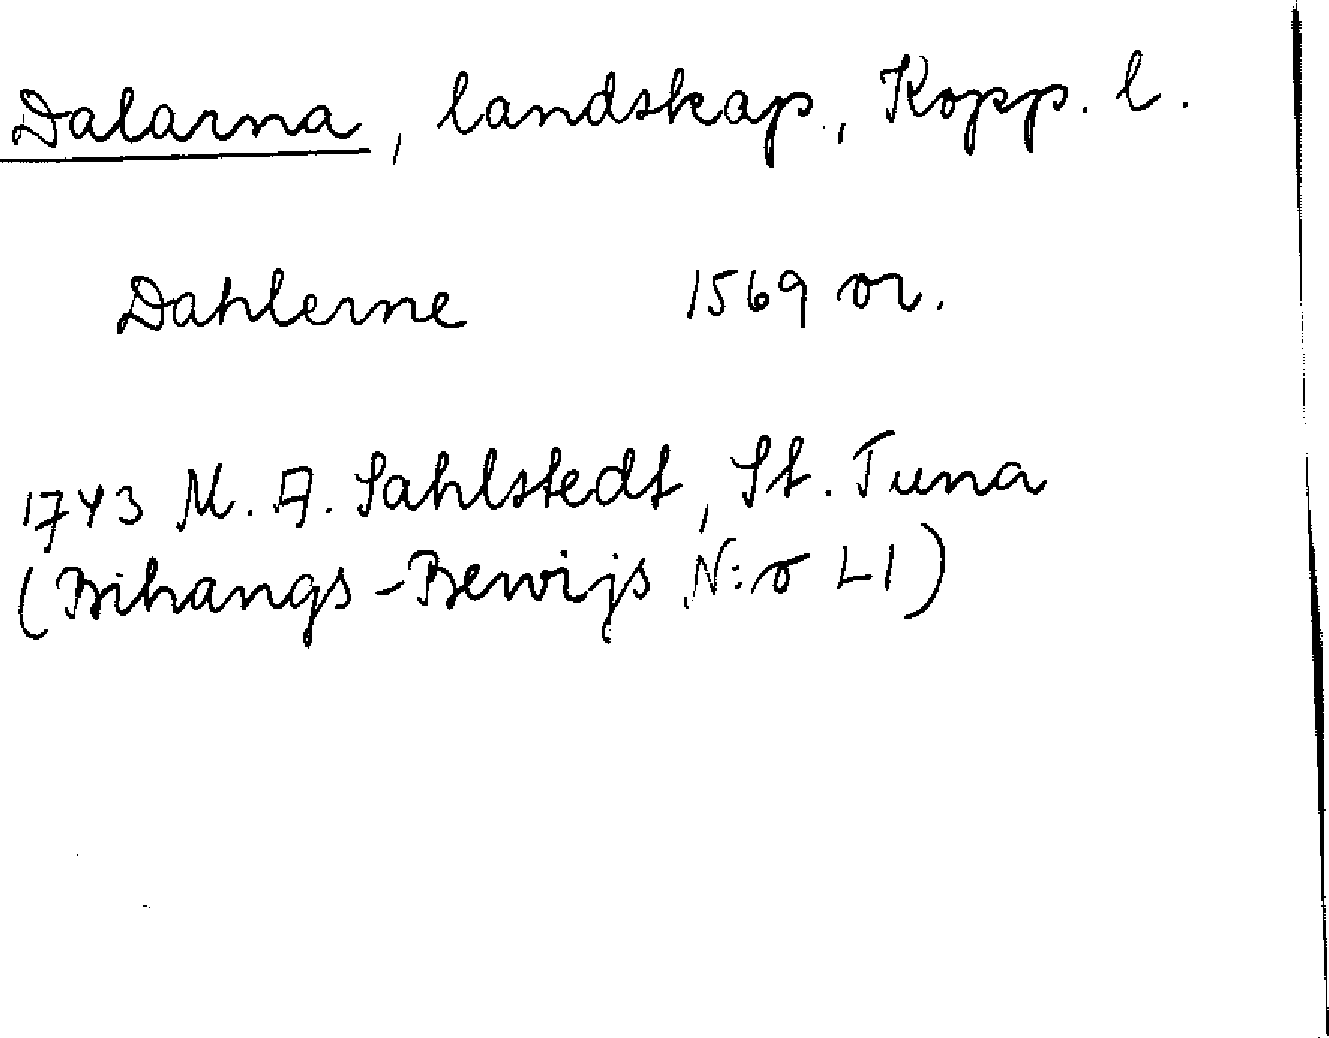 Dalarna, landskap., Kopp. l.
Dahlerne 1569 or.
1743 M. A. Sahlstedt, St. Tuna
(Bihangs-Bewijs N:o LI)